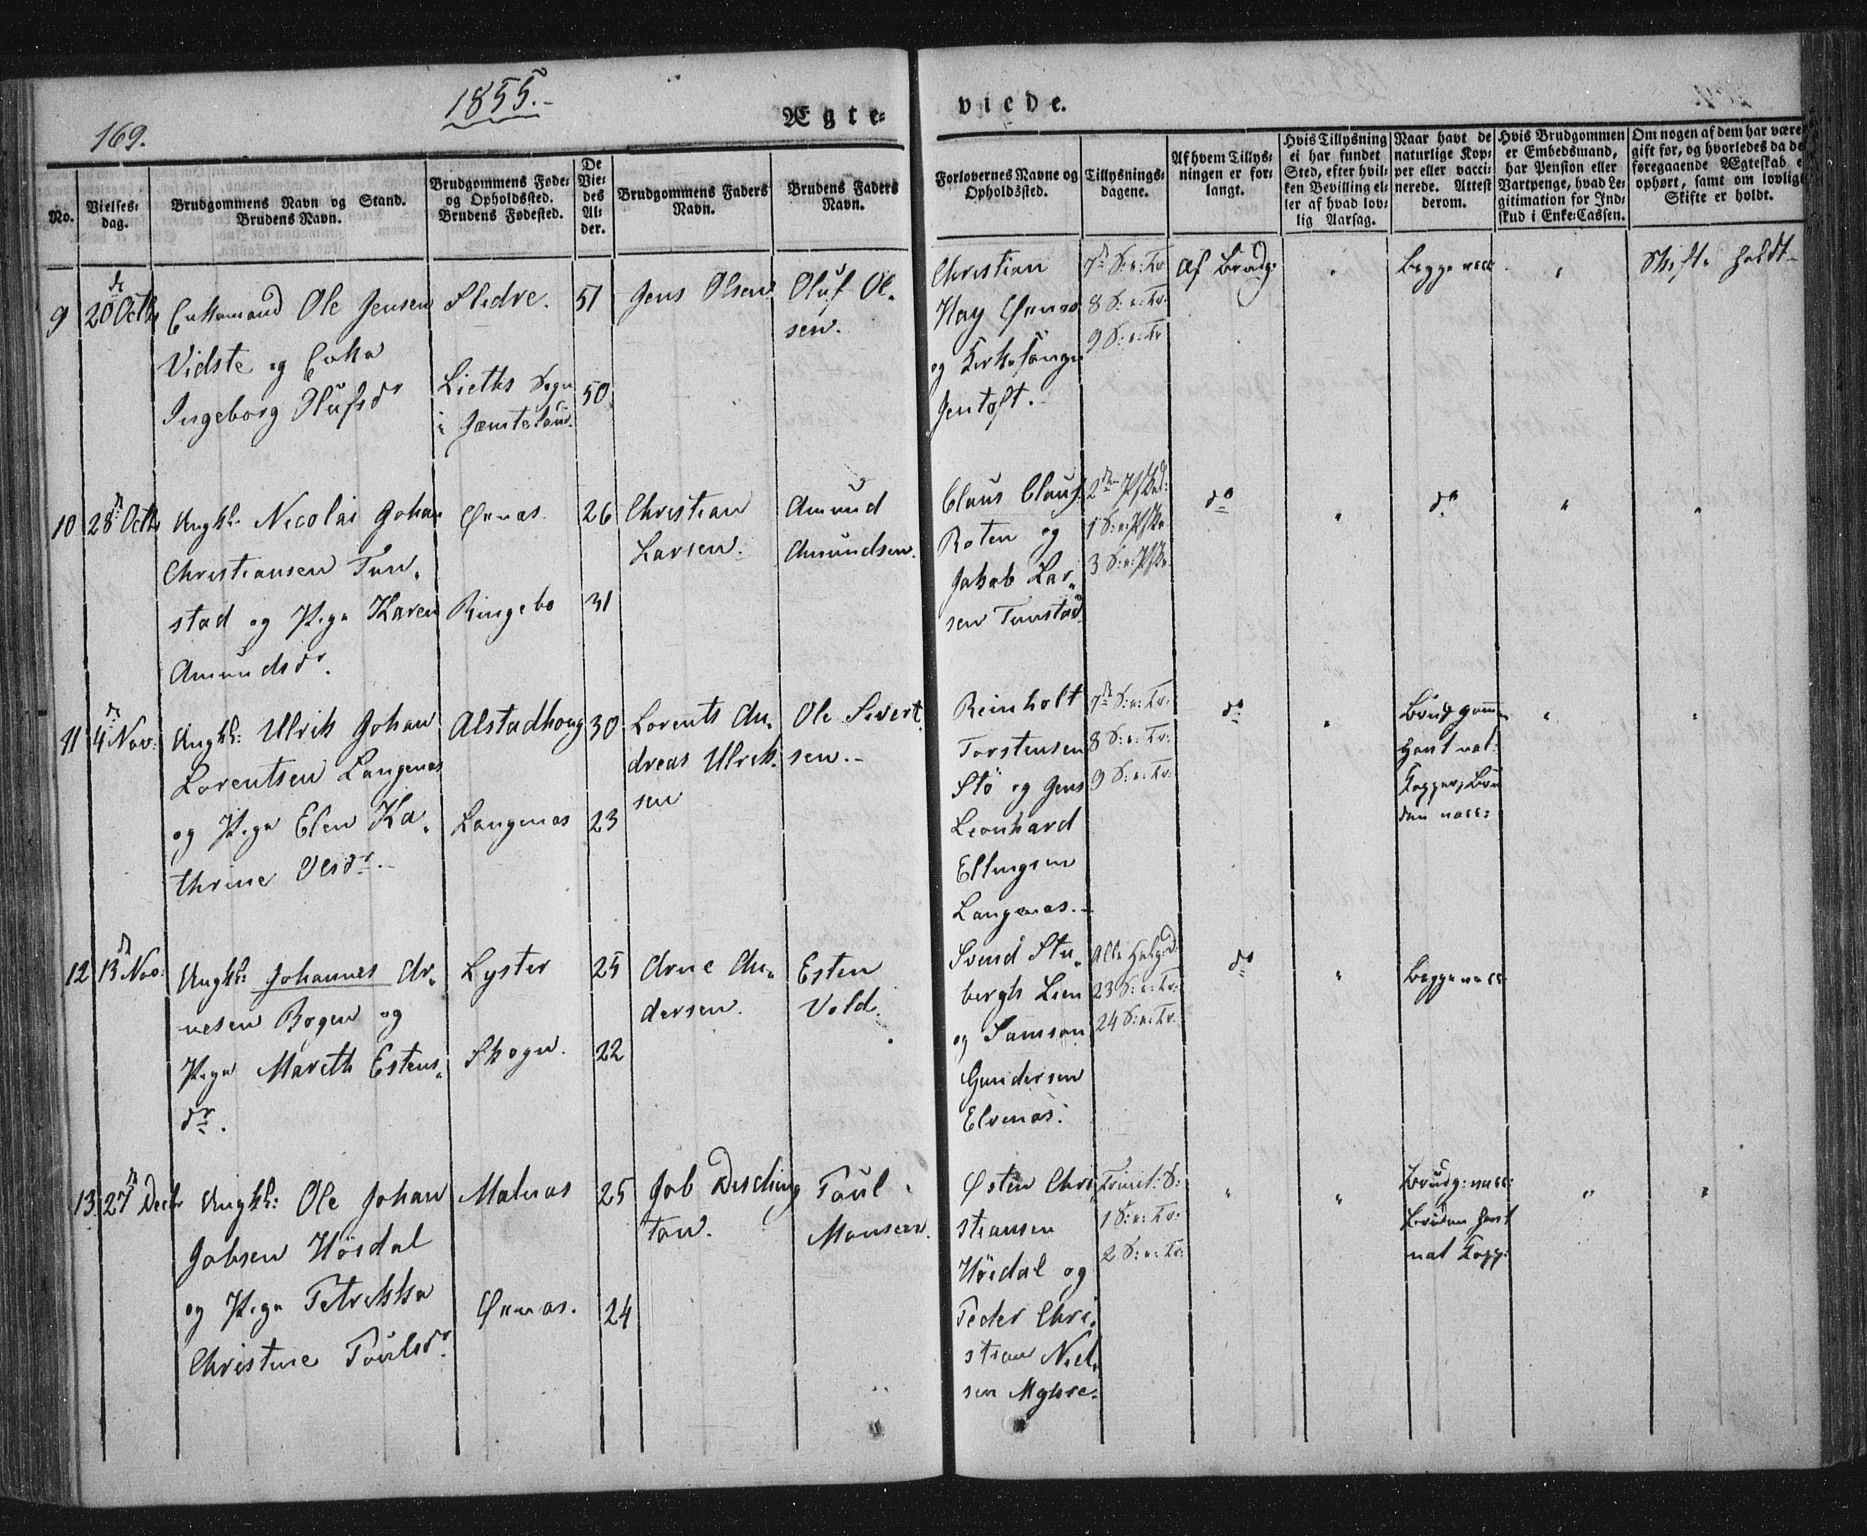 169.
1855.
Ægte-
viede.
No.
Vielses-
dag.
Brudgommens Navn og Stand.
Brudens Navn.
Brudgommens Føde-
og Opholdssted.
Brudens Fødested.
De
Vie-
des
Al-
der.
Brudgommens Faders
Navn.
Brudens Faders
Navn.
Forlovernes Navne og
Opholdssted.
Tillysnings-
dagene.
Af hvem Tillys-
ningen er for-
langt.
Hvis Tillysning
ei har fundet
Sted, efter hvil-
ken Bevilling el-
ler af hvad lov-
lig Aarsag.
Naar havt de
naturlige Kop-
per eller vacci-
nerede. Attest
derom.
Hvis Brudgommen
er Embedsmand,
har Pension eller
Vartpenge, hvad Le-
gitimation for Ind-
skud i Enke-Cassen.
Om nogen af dem har være
gift for, og hvorledes da de
foregaaende Ægteskab e
ophørt, samt om lovligt
Skifte er holdt.
9
20 Octb
Enkemand Ole Jensen
Vidste og Enke
Ingeborg Olufsdr
Slidre.
Lieths Sogn
i Jæmteland.
51
50
Jens Olsen
Oluf Ol-
sen.
Christian
Hay Ørnes
og Kirkesanger
Jentoft.
7de S: e: Tr
8 S: e: Tr:
9 S: e: Tr
Af Brudg:
Begge vacc
Skifte holdt
10
28 Octb
Ungk: Nicolai Johan
Christiansen Tun-
stad og Pige Karen
Amundsdr.
Ørnes
Ringebo
26
31
Christian
Larsen.
Amund
Amundsen.
Claus Claus
Roten og
Jakob Lar-
sen Tunstad
1 S: e: Pske
3 S: e: Pske
do
do
11
4 Nov:
Ungk: Ulrik Johan
Lorentsen Langenes
og Pige Elen Ka-
thrine Olsdr.
Alstadhoug
Langenes
30
23
Lorents An-
dreas Ulrik-
sen
Ole Sivert-
sen.
Reinholt
Torstensen
Stö og Jens
Leonhard
Ellingsen
Langenes.
7de S: e: Tr:
8 S: e: Tr:
9 S: e: Tr:
do
Brudgomm
havt nat:
Kopper, Bru
den vacc:
12
13 Nov:
Ungk: Johannes Ar-
nesen Bogen og
Pige Mareth Estens-
dr.
Lyster
Skogn.
25
22
Arne An-
dersen.
Esten
Vold.
Svend Stu-
bergh Lien
og Samson
Gundersen
Elvenes.
Alle Helg:d:
23 S: e: Tr:
24 S: e: Tr.
do
Begge vacc
13
27 Decbr
Ungk: Ole Johan
Jobsen Höidal
og Pige Petrikka
Christine Poulsdr
Matnes
Ørnes.
25
24
Job Disching-
ton.
Poul
Monsen.
Østen Chri-
stiansen
Höidal og
Peder Chri-
stian Niel-
sen Myhre.
Trinit: S:
1 S: e: Tr:
2 S: e: Tr:
Brudg: vacc:
Bruden havt
nat Kopp: